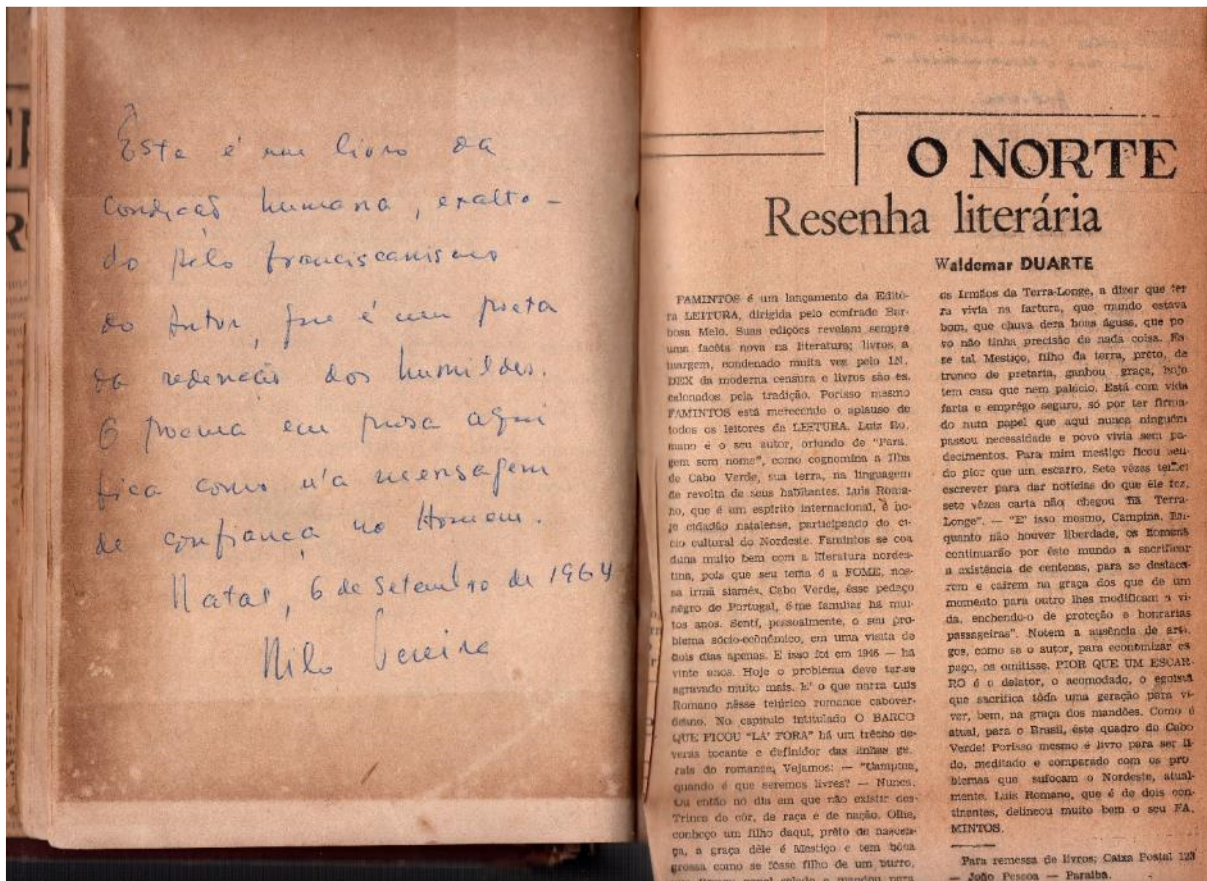 Este é um livro da
condição humana, exalta-
do pelo franciscanismo
do Autor, que é um poeta
da redenção dos humildes.
O poema em prosa aqui
fica como u'a mensagem
de confiança no Homem.
Natal, 6 de Setembro de 1964
Nilo Pereira
O NORTE
Resenha literária
Waldemar DUARTE
FAMINTOS é um lançamento da Edito-
ra LEITURA, dirigida pelo confrade Bar-
bosa Melo. Suas edições revelam sempre
uma facêta nova na literatura; livros a
margem, condenado muita vez pelo IN.
DEX da moderna censura e livros são es.
calonados pela tradição. Porisso mesmo
FAMINTOS está merecendo o aplauso de
todos os leitores da LEITURA. Luiz Ro.
mano é o seu autor, oriundo de "Para.
gem sem nome", como cognomina a Ilha
de Cabo Verde, sua terra, na linguagem
de revolta de seus habitantes. Luis Roma-
no, que é um espírito internacional, é ho-
je cidadão natalense, participando do ci-
clo cultural do Nordeste. Famintos se coa
duna muito bem com a literatura nordes-
tina, pois que seu tema é a FOME, nos-
sa irmã siamês. Cabo Verde, êsse pedaço
negro de Portugal, é-me familiar há mui-
tos anos. Sentí, pessoalmente, o seu pro-
blema sócio-econômico, em uma visita de
dois dias apenas. E isso foi em 1946 — há
vinte anos. Hoje o problema deve ter-se
agravado muito mais. E' o que narra Luis
Romano nêsse telúrico romance cabover-
diano. No capitulo intitulado O BARCO
QUE FICOU "LA' FORA" há um trêcho de-
veras tocante e definidor das linhas ge.
rais do romance, Vejamos: — "Campina,
quando é que seremos livres? — Nunca.
Ou então no dia em que não existir des-
Trinca de côr, de raça e de nação. Olhe,
conheço um filho daqui, prêto de nascen-
ça, a graça dêle é Mestiço e tem bôca
grossa como se fôsse filho de um burro,
papel selado e mandou para
os Irmãos da Terra-Longe, a dizer que ter
ra vivia na fartura, que mundo estava
bom, que chuva dera boas águas, que po
vo não tinha precisão de nada coisa. Es-
se tal Mestiço, filho da terra, prêto, de
tronco de pretaria, ganhou graça, hoje
tem casa que nem palácio. Está com vida
farta e emprêgo seguro, só por ter firma-
do num papel que aqui nunca ninguém
passou necessidade e povo vivia sem pa-
decimentos. Para mim mestiço ficou sen-
do pior que um escarro. Sete vêzes teimei
escrever para dar notícias do que êle fez,
sete vêzes carta não chegou na Terra-
Longe". — "E' isso mesmo, Campina. En-
quanto não houver liberdade, os homens
continuarão por êste mundo a sacrificar
a existência de centenas, para se destaca-
rem e cairem na graça dos que de um
momento para outro lhes modificam a vi-
da, enchendo-o de proteção e honrarias
passageiras". Notem a ausência de arti.
gos, como se o autor, para economizar es
paço, os omitisse. PIOR QUE UM ESCAR-
RO é o delator, o acomodado, o egoista
que sacrifica tôda uma geração para vi-
ver, bem, na graça dos mandões. Como é
atual, para o Brasil, êste quadro do Cabo
Verde! Porisso mesmo é livro para ser li-
do, meditado e comparado com os pro
blemas que sufocam o Nordeste, atual-
mente. Luis Romano, que é de dois con-
tinentes, delineou muito bem o seu FA.
MINTOS.
Para remessa de livros; Caixa Postal 123
— João Pessoa — Paraíba.